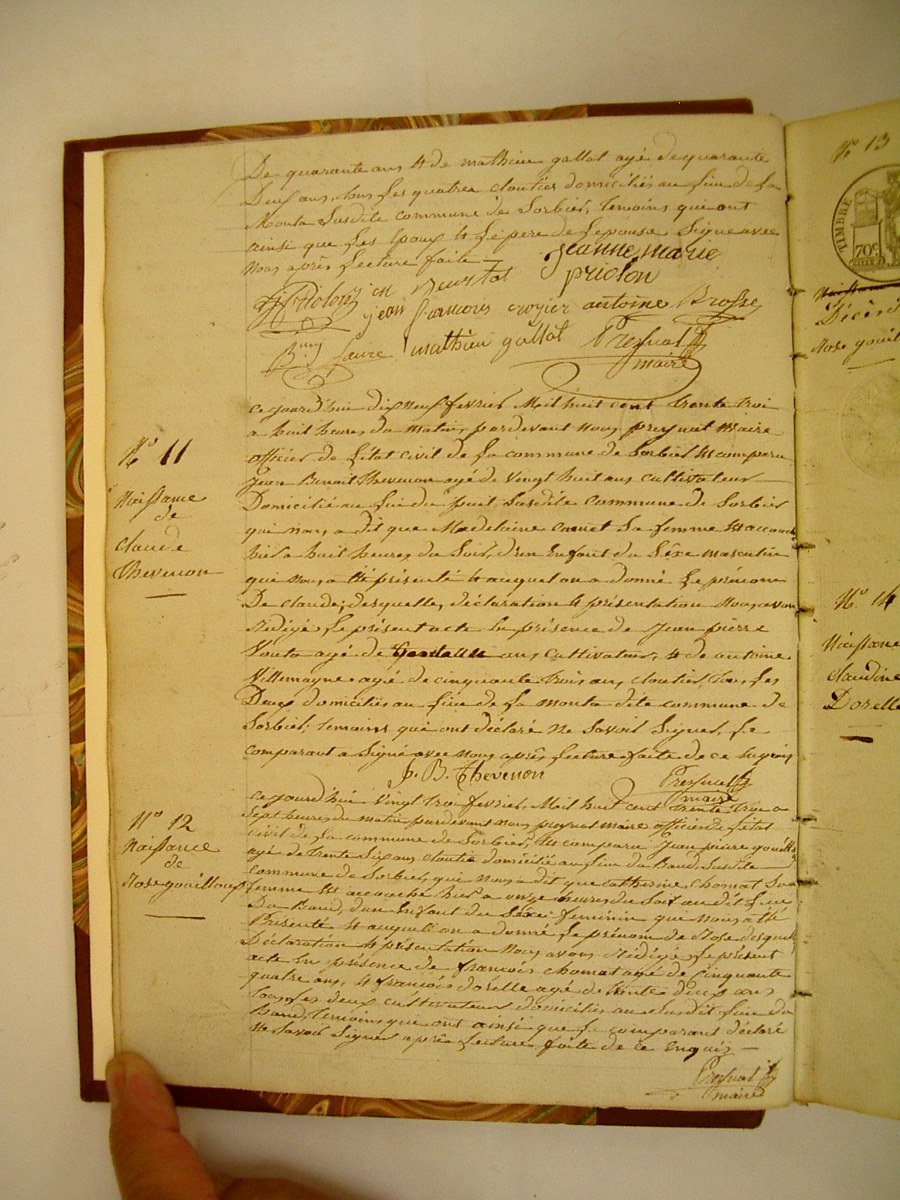 De quarante ans & de mathieu gallot agé de quarante
Deux ans, tous les quatres cloutiers domiciliés au lieu de la
Monta susdite commune de Sorbier, temoins qui ont
ainsi que les Epoux & le pere de l'epouse Signé avec
Nous après lecture faite —
jeanne marie
priolon
jean françois croyier antoine Brosse
faure mathieu gallot Preynat
maire
ce jourd'hui dix Neuf fevrier Mil huit cent trente troi
a huit heures du matin pardevant Nous preynat Maire
officier de l'état civil de la commune de Sorbier Est comparu
Jean Benoit Thevenon agé de vingt huit ans cultivateur
Domicilié au lieu du puit susdite commune de Sorbier
qui nous a dit que Madelaine cornet sa femme Est accouch
hier a huit heures du Soir, d'un Enfant du Sèxe masculin
que Nous a Eté présenté & auquel on a donné le prénom
De claude; desquelles déclaration & présentation Nous avon
Rédigé le présent acte En présence de Jean pierre
agé de ans cultivateur, & de antoine
Villemagne agé de cinquante trois ans, cloutier, tous les
Deux domiciliés au lieu de la monta dite commune de
Sorbier, temoins qui ont déclaré Ne Savoir Signer, le
comparant a Signé avec Nous après lecture faite de ce requis
J. B. Thevenon
Preynat
maire
N° 11
Naissance
de
claude
Thevenon
ce jourd'hui vingt troi fevrier, Mil huit cent trente troi a
Sept heures du matin pardevant nous preynat maire officier de l'état
civil de la commune de Sorbier, Est comparu Jean pierre gouillo
agé de trente Six ans cloutier domicilié au lieu du Band, susdite
commune de Sorbier, qui Nous a dit que catherine chomat Sa
femme Est accouché hier a onze heures du Soir au dit lieu
Du Band, d'un Enfant du Sèxe feminin que Nous a Eté
Présenté & auquel on a donné le prénom de Rose desquel
Déclaration & présentation Nous avons Rédigé le présent
acte En présence de françois chomat agé de cinquante
quatre ans, & françois dorelle agé de trente Deux ans
tous les deux cultivateurs domiciliés au susdit lieu du
Band, temoins qui ont ainsi que le comparant déclaré
Ne Savoir Signer après lecture faite de ce Enquis —
Preynat
maire
N° 12
Naissance
de
Rose gouilloux
N° 13
TIMBRE
70c
Décès d
Rose gouil
N° 14
Naissane
claudine
Dorelle